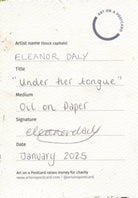 ART ON A POSTCARD
Artist name (block capitals)
ELEANOR DALY
Title
"Under her tongue"
Medium
Oil on Paper
Signature
eleanordaly
Date
January 2025
Art on a Postcard raises money for charity
www.artonapostcard.com / @artonapostcard